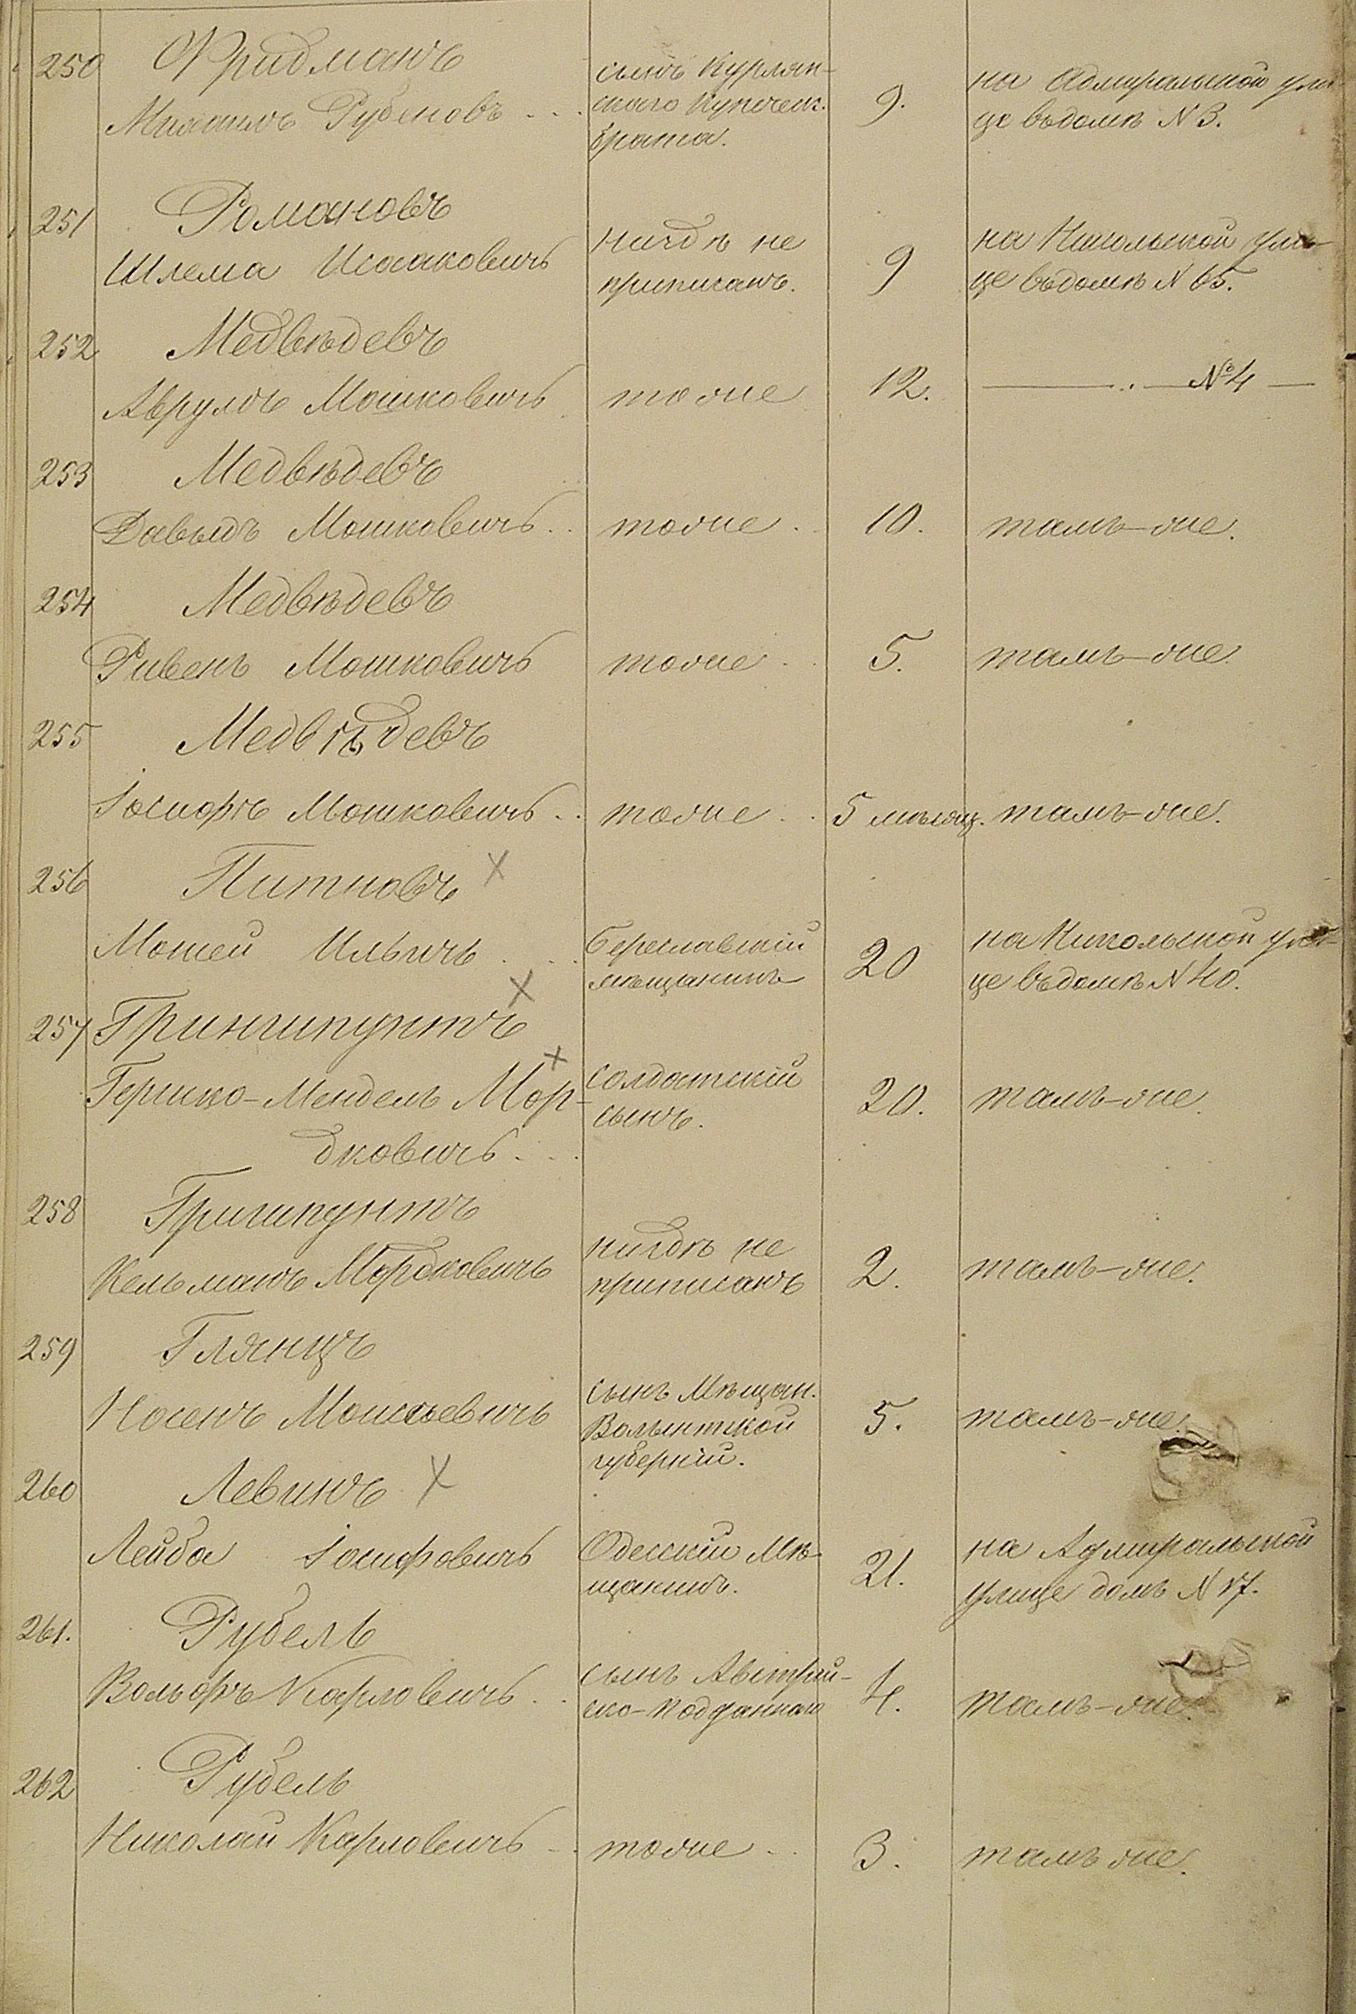 250
Фридманъ
Михаилъ Рубеновъ . . .
сынъ Курлян-
скаго Купеческ.
брата.
9.
на Адмиральской ули
це въ домѣ N 3.
251
Романовъ
Шлема Исааковичъ
нигдѣ не
приписанъ.
9
на Никольской ули-
це въ домѣ N 65.
252
Медвѣдевъ
Аврумъ Мошковичъ
тоже
12.
— „ — № 4 —
253
Медвѣдевъ
Давыдъ Мошковичъ . .
тоже .
10.
тамъ-же.
254
Медвѣдевъ
Рувенъ Мошковичъ
тоже . .
5.
тамъ-же.
255
Медвѣдевъ
Іосифъ Мошковичъ . .
тоже . .
5 мѣсяц.
тамъ-же.
256
Питновъ X
Мошей Ильичъ . . .
Береславскій
мѣщанинъ
20
на Никольской ули-
це въ домѣ N 40.
257
X
Гриншпунтъ
Гершко-Мендель Мор-
X
дковичъ . . .
солдатскій
сынъ.
20.
тамъ-же.
258
Гришпунтъ
Кельманъ Мордковичъ
нигдѣ не
приписанъ
2.
тамъ-же.
259
Глянцъ
Носенъ Моисеевичъ
сынъ Мѣщан.
Волынской
губерніи.
5.
тамъ-же.
260
Левинъ X
Лейба Іосифовичъ
Одесскій Мѣ-
щанинъ.
21.
на Адмиральской
улице домъ N 17.
261.
Рубель
Вольфъ Карловичъ . .
сынъ Австрій-
ско-подданнаго
4.
тамъ-же.
262
Рубель
Николай Карловичъ . .
тоже . .
3.
тамъ же.